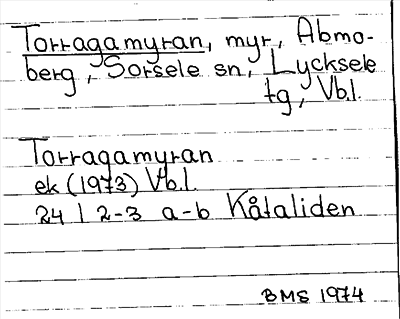 Torragamyran, myr, Abmo-
berg, Sorsele sn, Lycksele
tg, Vb.l.
Torragamyran
ek (1973) Vb.l.
24 I 2-3 a-b Kåtaliden
BMS 1974